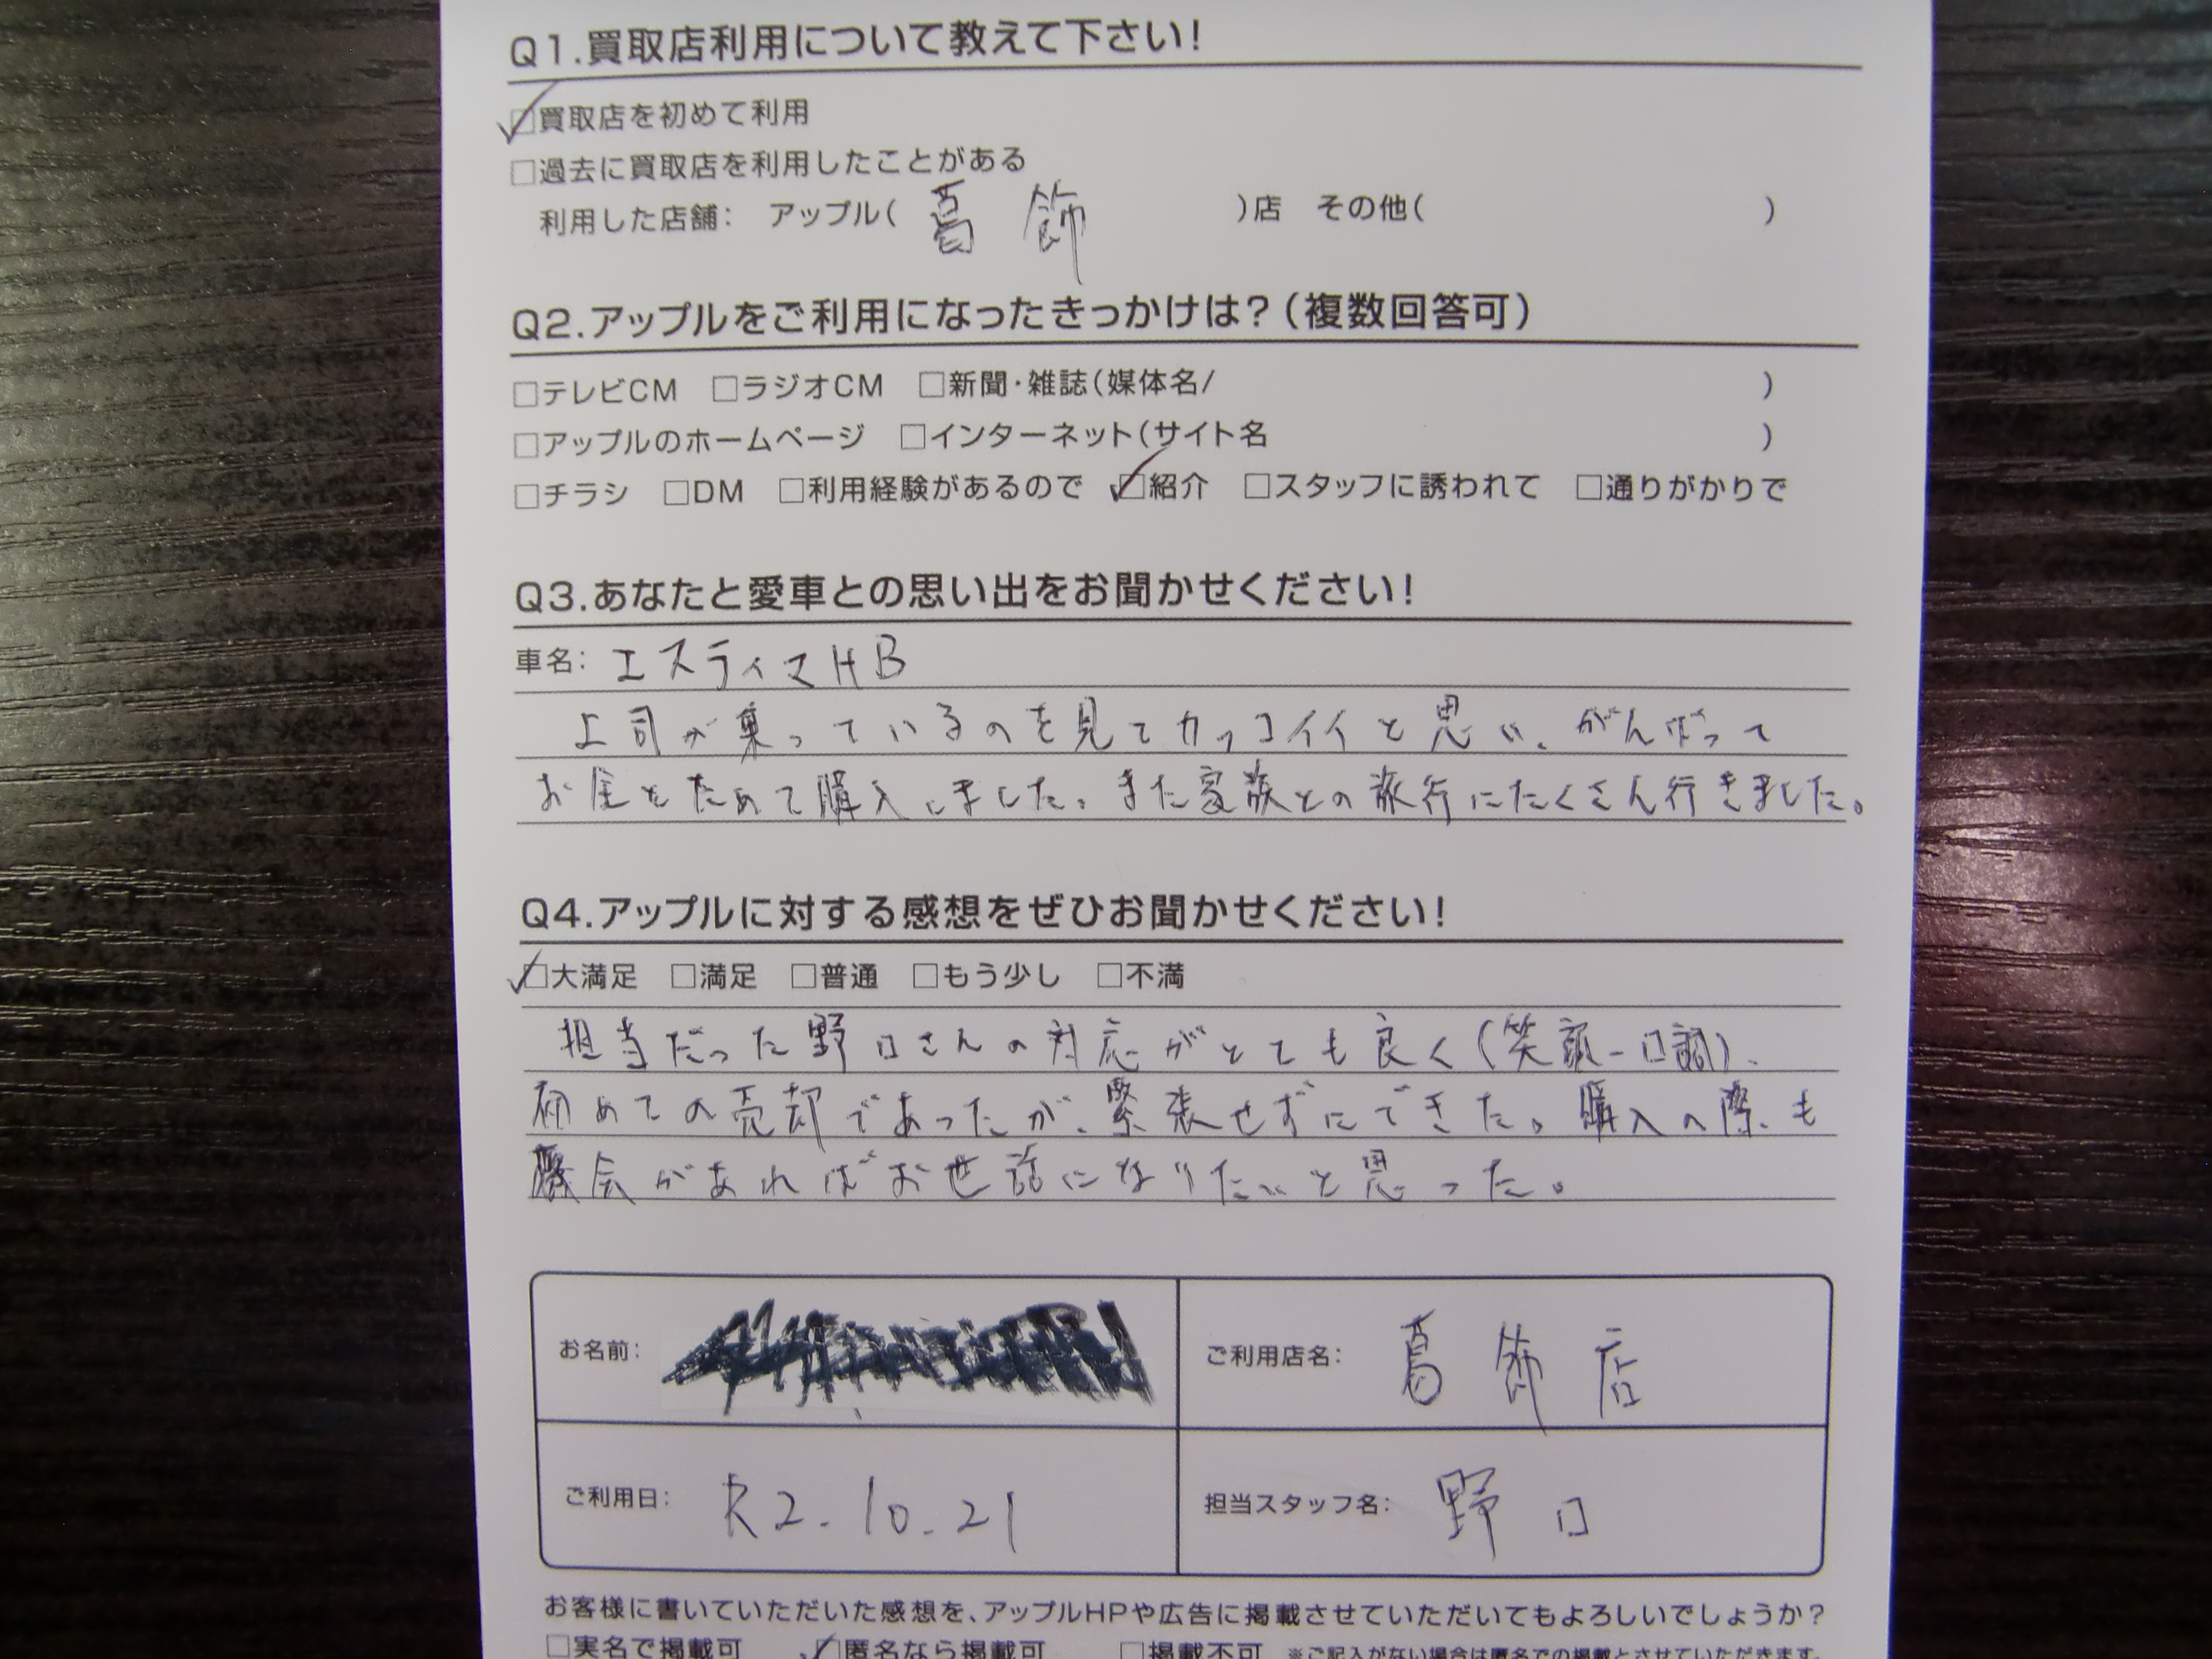 Q1.買取店利用について教えて下さい!
☑買取店を初めて利用
□過去に買取店を利用したことがある
利用した店舗: アップル(葛飾)店 その他( )
Q2.アップルをご利用になったきっかけは?(複数回答可)
□テレビCM □ラジオCM □新聞・雑誌(媒体名/ )
□アップルのホームページ □インターネット(サイト名 )
□チラシ □DM □利用経験があるので ☑紹介 □スタッフに誘われて □通りがかりで
Q3.あなたと愛車との思い出をお聞かせください!
車名: エスティマHB
上司が乗っているのを見てカッコイイと思い、がんばって
お金をためて購入しました。また家族との旅行にたくさん行きました。
Q4.アップルに対する感想をぜひお聞かせください!
☑大満足 □満足 □普通 □もう少し □不満
担当だった野口さんの対応がとても良く(笑顔-口調)、
初めての売却であったが、緊張せずにできた。購入の際も
機会があればお世話になりたいと思った。
お名前:
ご利用店名: 葛飾店
ご利用日: R2.10.21
担当スタッフ名: 野口
お客様に書いていただいた感想を、アップルHPや広告に掲載させていただいてもよろしいでしょうか?
□実名で掲載可 ☑匿名なら掲載可 □掲載不可 ※ご記入がない場合は匿名での掲載とさせていただきます。